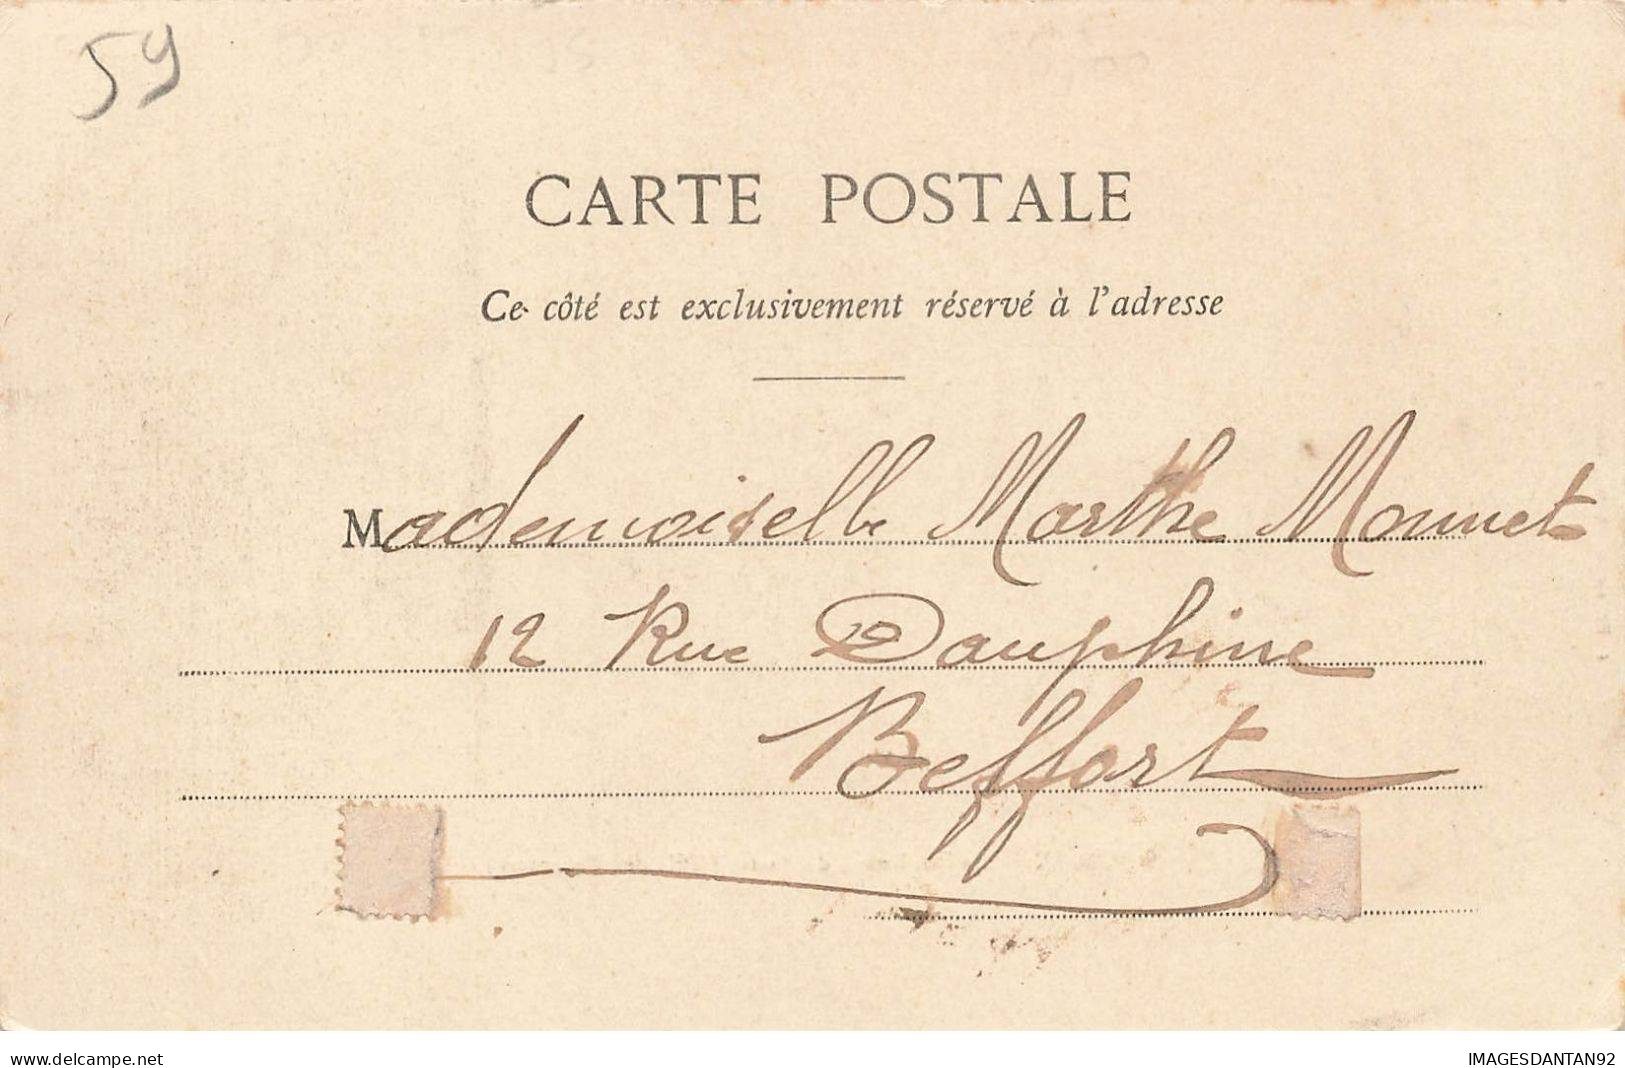 59
CARTE POSTALE
Ce côté est exclusivement réservé à l'adresse
Mademoiselle Marthe Monnet
12 Rue Dauphine
Belfort
www.delcampe.net
IMAGESDANTAN92